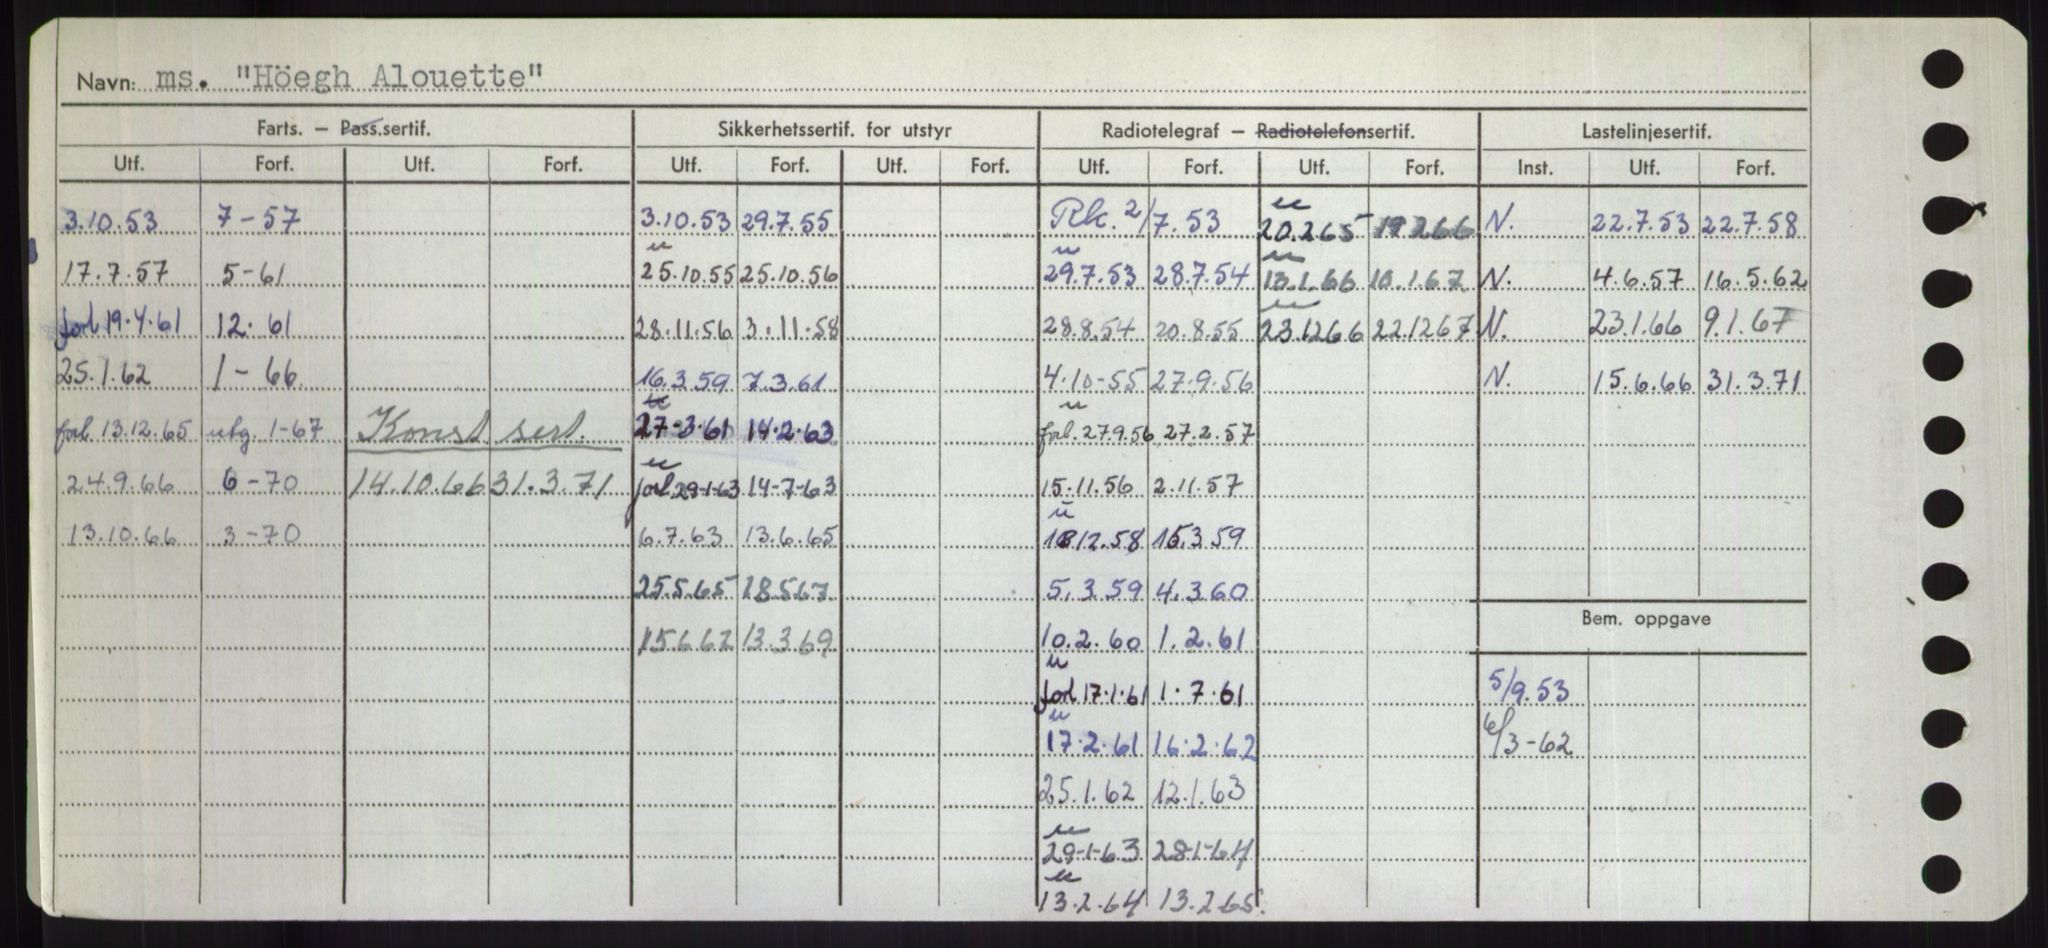 Navn: ms. "Höegh Alouette"
Farts. – Pass.sertif. Sikkerhetssertif. for utstyr Radiotelegraf – Radiotelefonsertif. Lastelinjesertif.
Utf. Forf. Utf. Forf. Utf. Forf. Utf. Forf. Utf. Forf. Utf. Forf. Inst. Utf. Forf.
3.10.53 7-57 3.10.53 29.7.55 Rk. 2/7.53 u 20.2.65 19.2.66 N. 22.7.53 22.7.58
17.7.57 5-61 u 25.10.55 25.10.56 u 29.7.53 28.7.54 u 13.1.66 10.1.67 N. 4.6.57 16.5.62
forl 19.4.61 12.61 28.11.56 3.11.58 28.8.54 20.8.55 u 23.12.66 22.12.67 N. 23.1.66 9.1.67
25.1.62 1-66 16.3.59 7.3.61 4.10-55 27.9.56 N. 15.6.66 31.3.71
forl. 13.12.65 utg. 1-67 Konst sert. u 27-3.61 14.2.63 u forl. 27.9.56 27.2.57
24.9.66 6-70 14.10.66 31.3.71 u forl. 29-1-63 14-7-63 15.11.56 2.11.57
13.10.66 3-70 6.7.63 13.6.65 u 12.58 15.3.59
25.5.65 18.5.67 5.3.59 4.3.60
15.6.67 13.3.69 10.2.60 1.2.61
Bem. oppgave
u forl 17.1.61 1.7.61 5/9.53
u 17.2.61 16.2.62 6/3-62
25.1.62 12.1.63
u 29-1-63 28-1-64
u 13.2.64 13.2.65.